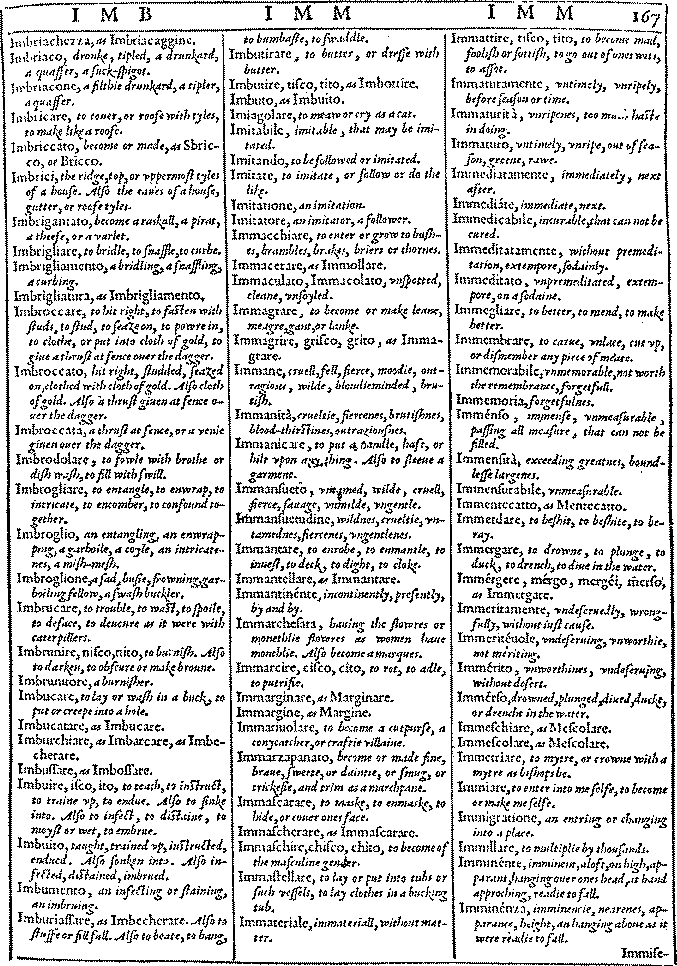 I M B
I M M
I M M
167
Imbriachezza, as Imbriacaggine.
Imbriaco, dronke, tipled, a drunkard,
a quaffer, a suck-spigot.
Imbriacone, a filthie drunkard, a tipler,
a quaffer.
Imbricare, to couer, or roofe with tyles,
to make like a roofe.
Imbriccato, become or made, as Sbric-
co, or Bricco.
Imbrici, the ridge, top, or vppermost tyles
of a house. Also the eaues of a house,
gutter, or roofe tyles.
Imbrigantato, become a raskall, a pirat,
a theefe, or a varlet.
Imbrigliare, to bridle, to snaffle, to curbe.
Imbrigliamento, a bridling, a snaffling,
a curbing.
Imbrigliatura, as Imbrigliamento.
Imbroccare, to hit right, to fasten with
studs, to stud, to seaze on, to powre in,
to clothe, or put into cloth of gold, to
giue a thrust at fence ouer the dagger.
Imbroccato, hit right, studded, seazed
on, clothed with cloth of gold. Also cloth
of gold. Also a thrust giuen at fence o-
uer the dagger.
Imbroccata, a thrust at fence, or a venie
giuen ouer the dagger.
Imbrodolare, to fowle with brothe or
dish wash, to fill with swill.
Imbrogliare, to entangle, to enwrap, to
intricate, to encomber, to confound to-
gether.
Imbroglio, an entangling, an enwrap-
ping, a garboile, a coyle, an intricate-
nes, a mish-mesh.
Imbroglione, a sad, busie, frowning, gar-
boiling fellow, a swash buckler.
Imbrucare, to trouble, to wast, to spoile,
to deface, to deuoure as it were with
caterpillers.
Imbrunire, nisco, nito, to burnish. Also
to darken, to obscure or make browne.
Imbrunitore, a burnisher.
Imbucare, to lay or wash in a buck, to
put or creepe into a hole.
Imbucatare, as Imbucare.
Imburchiare, as Imbarcare, as Imbe-
cherare.
Imbussare, as Imbossare.
Imbuire, isco, ito, to teach, to instruct,
to traine vp, to endue. Also to sinke
into. Also to infect, to distaine, to
moyst or wet, to embrue.
Imbuito, taught, trained vp, instructed,
endued. Also sonken into. Also in-
fected, distained, imbrued.
Imbumento, an infecting or staining,
an imbruing.
Imburiassare, as Imbecherare. Also to
stuffe or fill full. Also to beate, to bang,
to bumbaste, to swaddle.
Imbutirare, to butter, or dresse with
butter.
Imbutire, tisco, tito, as Imbottire.
Imbuto, as Imbuito.
Imiagolare, to meaw or cry as a cat.
Imitabile, imitable, that may be imi-
tated.
Imitando, to be followed or imitated.
Imitate, to imitate, or follow or do the
like.
Imitatione, an imitation.
Imitatore, an imitator, a follower.
Immacchiare, to enter or grow to bush-
es, brambles, brakes, briers or thornes.
Immacerare, as Immollare.
Immaculato, Immacolato, vnspotted,
cleane, vnsoyled.
Immagrare, to become or make leane,
meagre, gant, or lanke.
Immagrire, grisco, grito, as Imma-
grare.
Immane, cruell, fell, fierce, moodie, out-
ragious, wilde, bloudieminded, bru-
tish.
Immanità, crueltie, fiercenes, brutishnes,
blood-thirstines, outragiousnes.
Immanicare, to put a handle, haft, or
hilt vpon any thing. Also to sleeue a
garment.
Immansueto, vntamed, wilde, cruell,
fierce, sauage, vnmilde, vngentle.
Immansuetudine, wildnes, crueltie, vn-
tamednes, fiercenes, vngentlenes.
Immantare, to enrobe, to enmantle, to
inuest, to deck, to dight, to cloke.
Immantellare, as Immantare.
Immantinénte, incontinently, presently,
by and by.
Immarchesata, hauing the flowres or
monethlie flowres as women haue
monethlie. Also become a marques.
Immarcire, cisco, cito, to rot, to adle,
to putrifie.
Immarginare, as Marginare.
Immargine, as Margine.
Immariuolare, to become a cutpurse, a
conycatcher, or craftie villaine.
Immarzapanato, become or made fine,
braue, sweete, or daintie, or smug, or
trickesie, and trim as a marchpane.
Immascarare, to maske, to enmaske, to
hide, or couer ones face.
Immascherare, as Immascarare.
Immaschire, chisco, chito, to become of
the masculine gender.
Immastellare, to lay or put into tubs or
such vessels, to lay clothes in a bucking
tub.
Immateriale, immateriall, without mat-
ter.
Immattire, tisco, tito, to become mad,
foolish or sottish, to go out of ones wits,
to assot.
Immaturamente, vntimely, vnripely,
before season or time.
Immaturità, vnripenes, too much haste
in doing.
Immaturo, vntimely, vnripe, out of sea-
son, greene, rawe.
Immediatamente, immediately, next
after.
Immediáte, immediate, next.
Immedicabile, incurable, that can not be
cured.
Immeditatamente, without premedi-
tation, extempore, sodainly.
Immeditato, vnpremeditated, extem-
pore, on a sodaine.
Immegliare, to better, to mend, to make
better.
Immembrare, to carue, vnlace, cut vp,
or dismember any piece of meate.
Immemorabile, vnmemorable, not worth
the remembrance, forgetfull.
Immemoria, forgetfulnes.
Immenso, immense, vnmeasurable,
passing all measure, that can not be
filled.
Immensità, exceeding greatnes, bound-
lesse largenes.
Immensurabile, vnmeasurable.
Immentecatto, as Mentecatto.
Immerdare, to beshit, to beshite, to be-
ray.
Immergare, to drowne, to plunge, to
duck, to drench, to diue in the water.
Immérgere, mérgo, mergéi, mérso,
as Immergare.
Immeritamente, vndeseruedly, wrong-
fully, without iust cause.
Immeritéuole, vndeseruing, vnworthie,
not meriting.
Immérito, vnworthines, vndeseruing,
without desert.
Immérso, drowned, plunged, diued, duckt,
or drencht in the water.
Immeschiare, as Mescolare.
Immescolare, as Mescolare.
Immetriare, to mytre, or crowne with a
mytre as bishops be.
Immiare, to enter into me selfe, to become
or make me selfe.
Immigratione, an entring or changing
into a place.
Immillare, to multiplie by thousands.
Imminénte, imminent, aloft, on high, ap-
parant, hanging ouer ones head, at hand
approching, readie to fall.
Imminénza, imminencie, nearenes, ap-
parance, height, an hanging aboue as it
were readie to fall.
Immise-